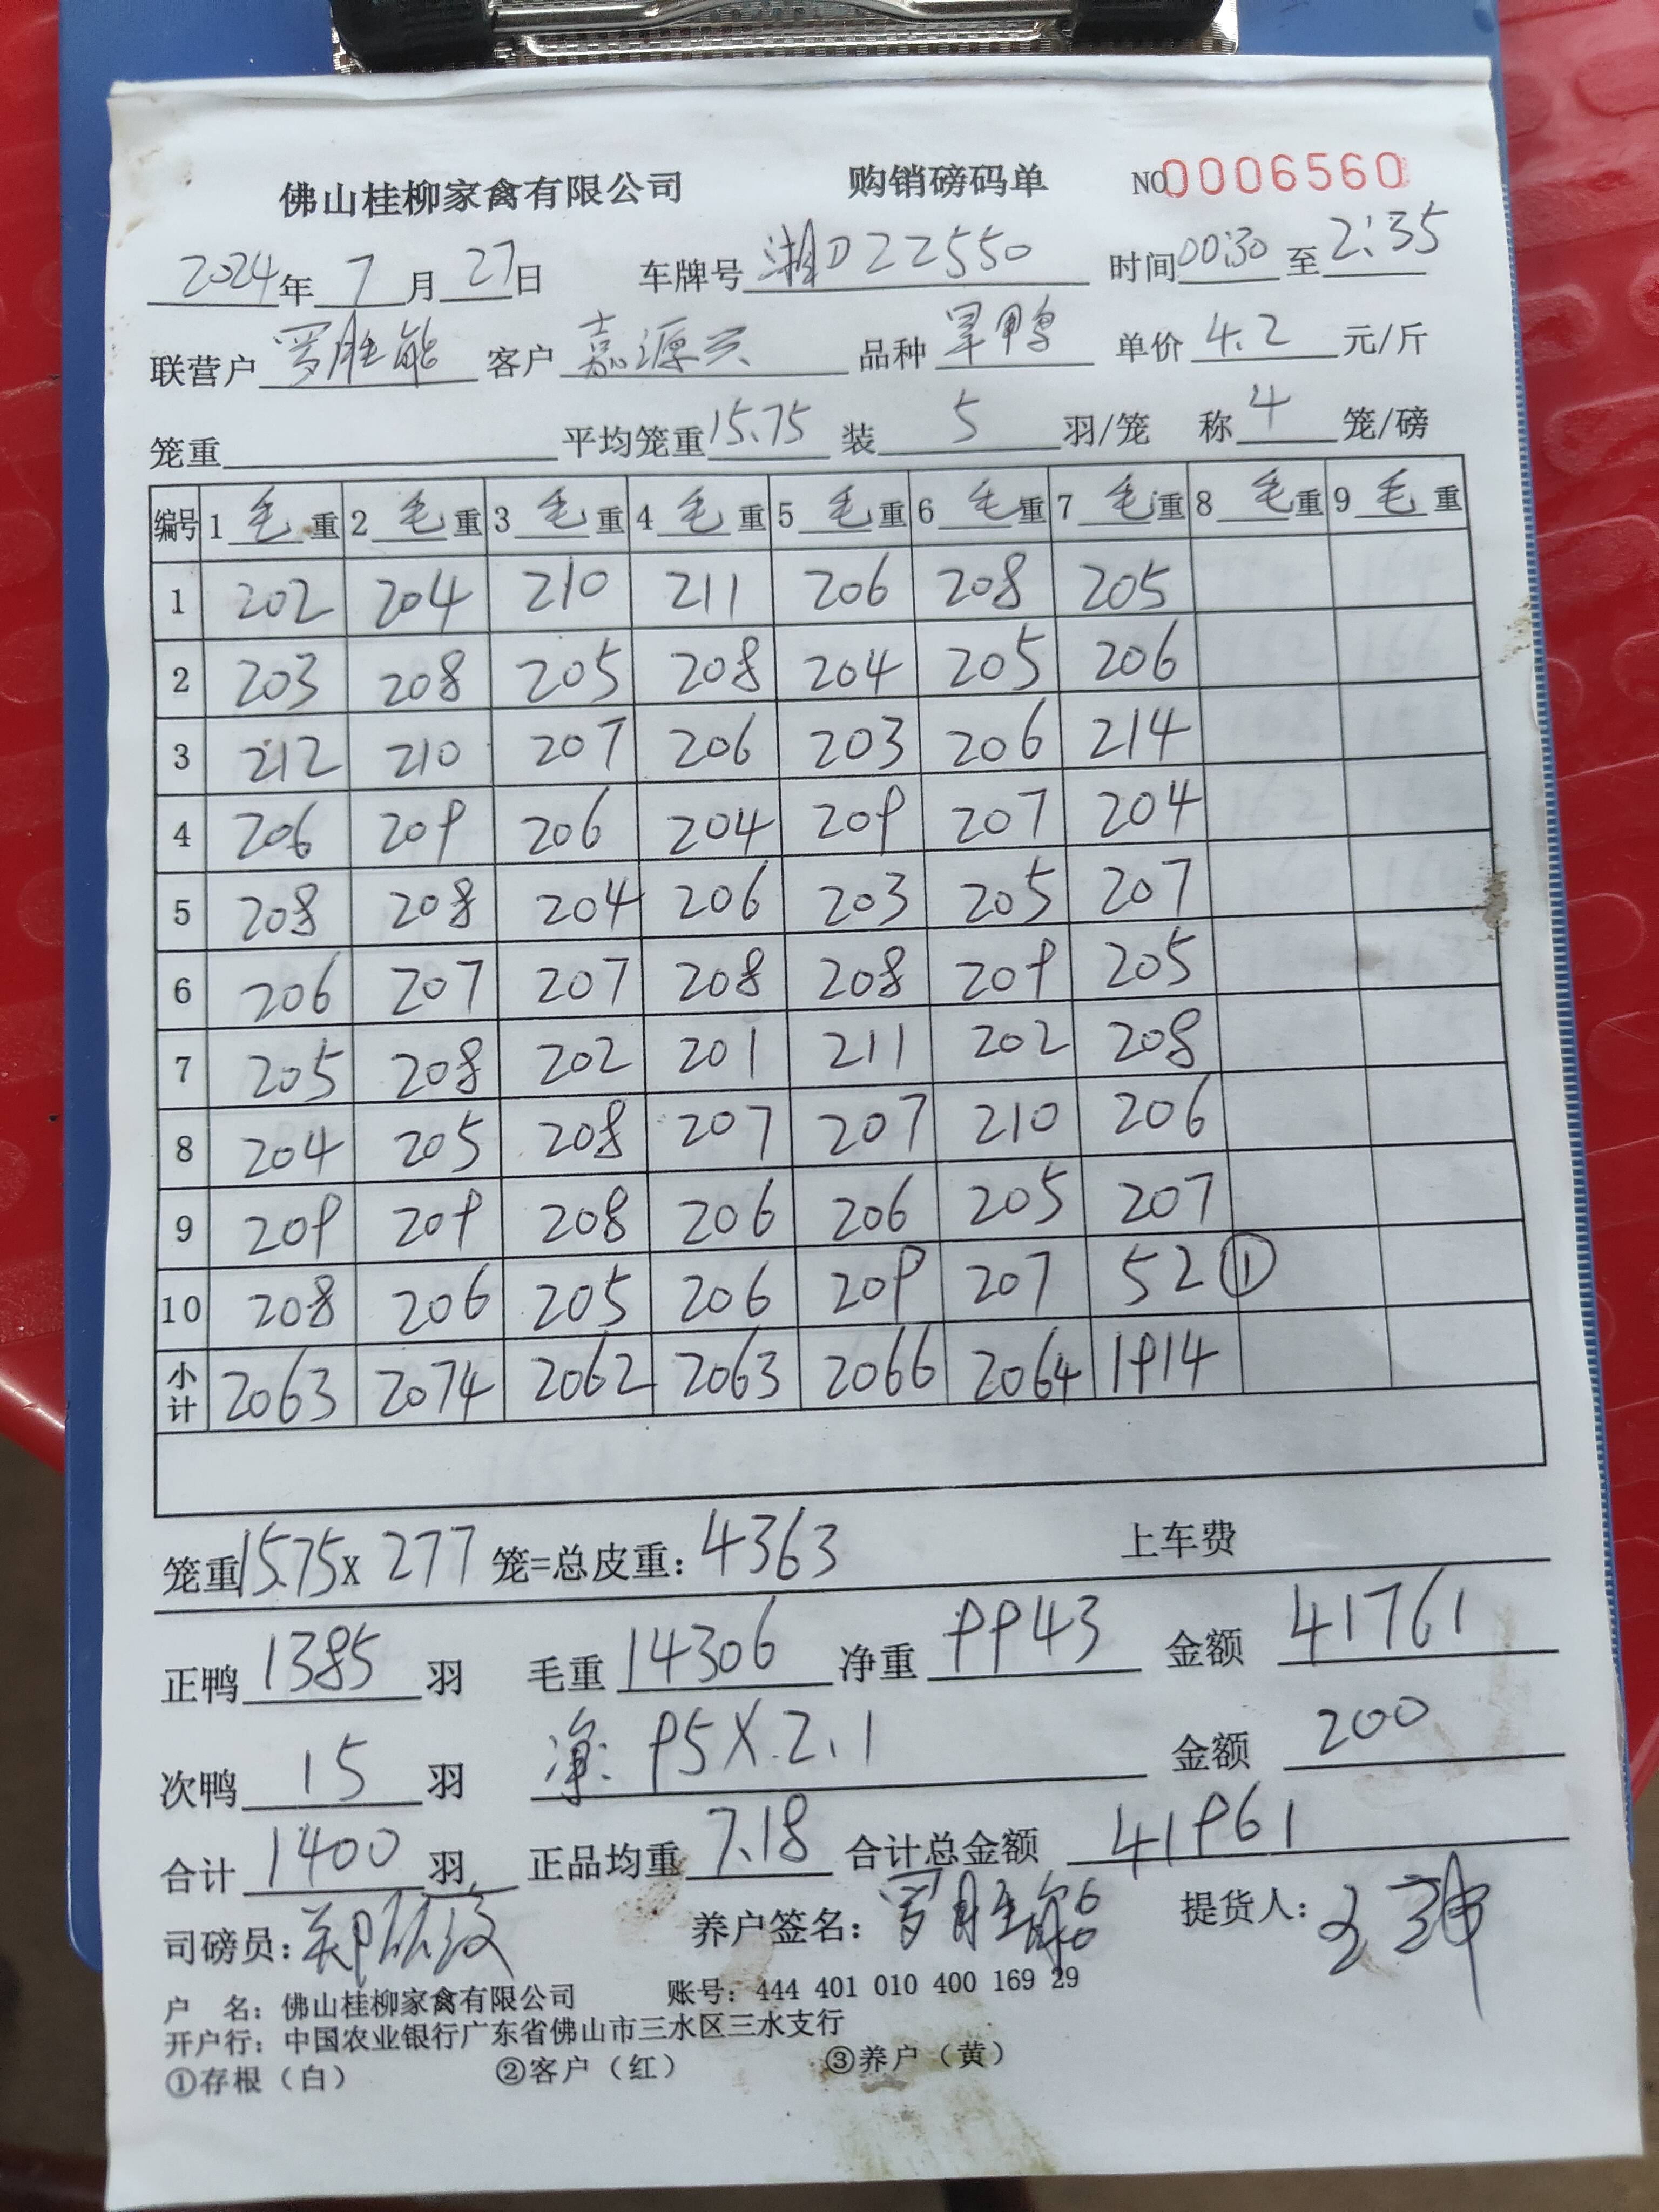 佛山桂柳家禽有限公司 购销磅码单 NO0006560
2024年7月27日 车牌号湘D22550 时间00:30至2:35
联营户罗胜能 客户嘉源兴 品种旱鸭 单价4.2元/斤
笼重 平均笼重15.75 装5羽/笼 称4笼/磅
编号 1毛重 2毛重 3毛重 4毛重 5毛重 6毛重 7毛重 8毛重 9毛重
1 202 204 210 211 206 208 205
2 203 208 205 208 204 205 206
3 212 210 207 206 203 206 214
4 206 209 206 204 209 207 204
5 208 208 204 206 203 205 207
6 206 207 207 208 208 209 205
7 205 208 202 201 211 202 208
8 204 205 208 207 207 210 206
9 209 209 208 206 206 205 207
10 208 206 205 206 209 207 52 ①
小计 2063 2074 2062 2063 2066 2064 1914
笼重15.75X277笼=总皮重:4363 上车费
正鸭1385羽 毛重14306净重9943 金额41761
次鸭15羽 净:95X2.1 金额200
合计1400羽 正品均重7.18合计总金额41961
司磅员: 养户签名:罗胜能 提货人:
户 名:佛山桂柳家禽有限公司 账号:444 401 010 400 169 29
开户行:中国农业银行广东省佛山市三水区三水支行
①存根(白) ②客户(红) ③养户(黄)